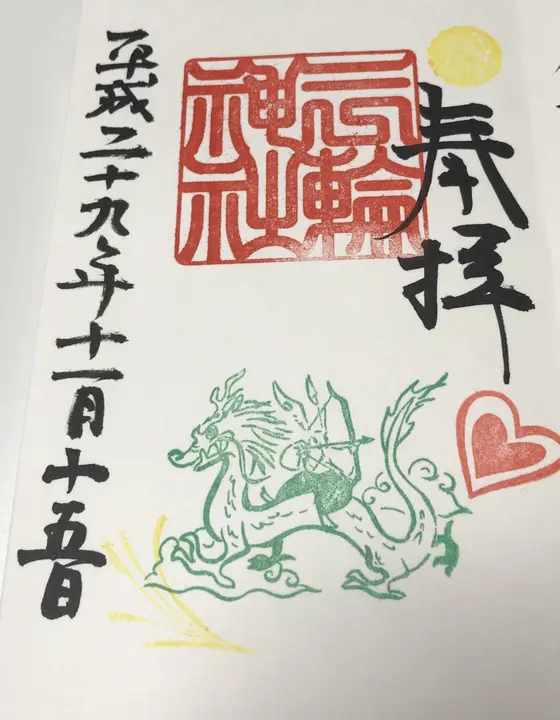 奉拝
三輪
神社
平成二十九年十一月十五日